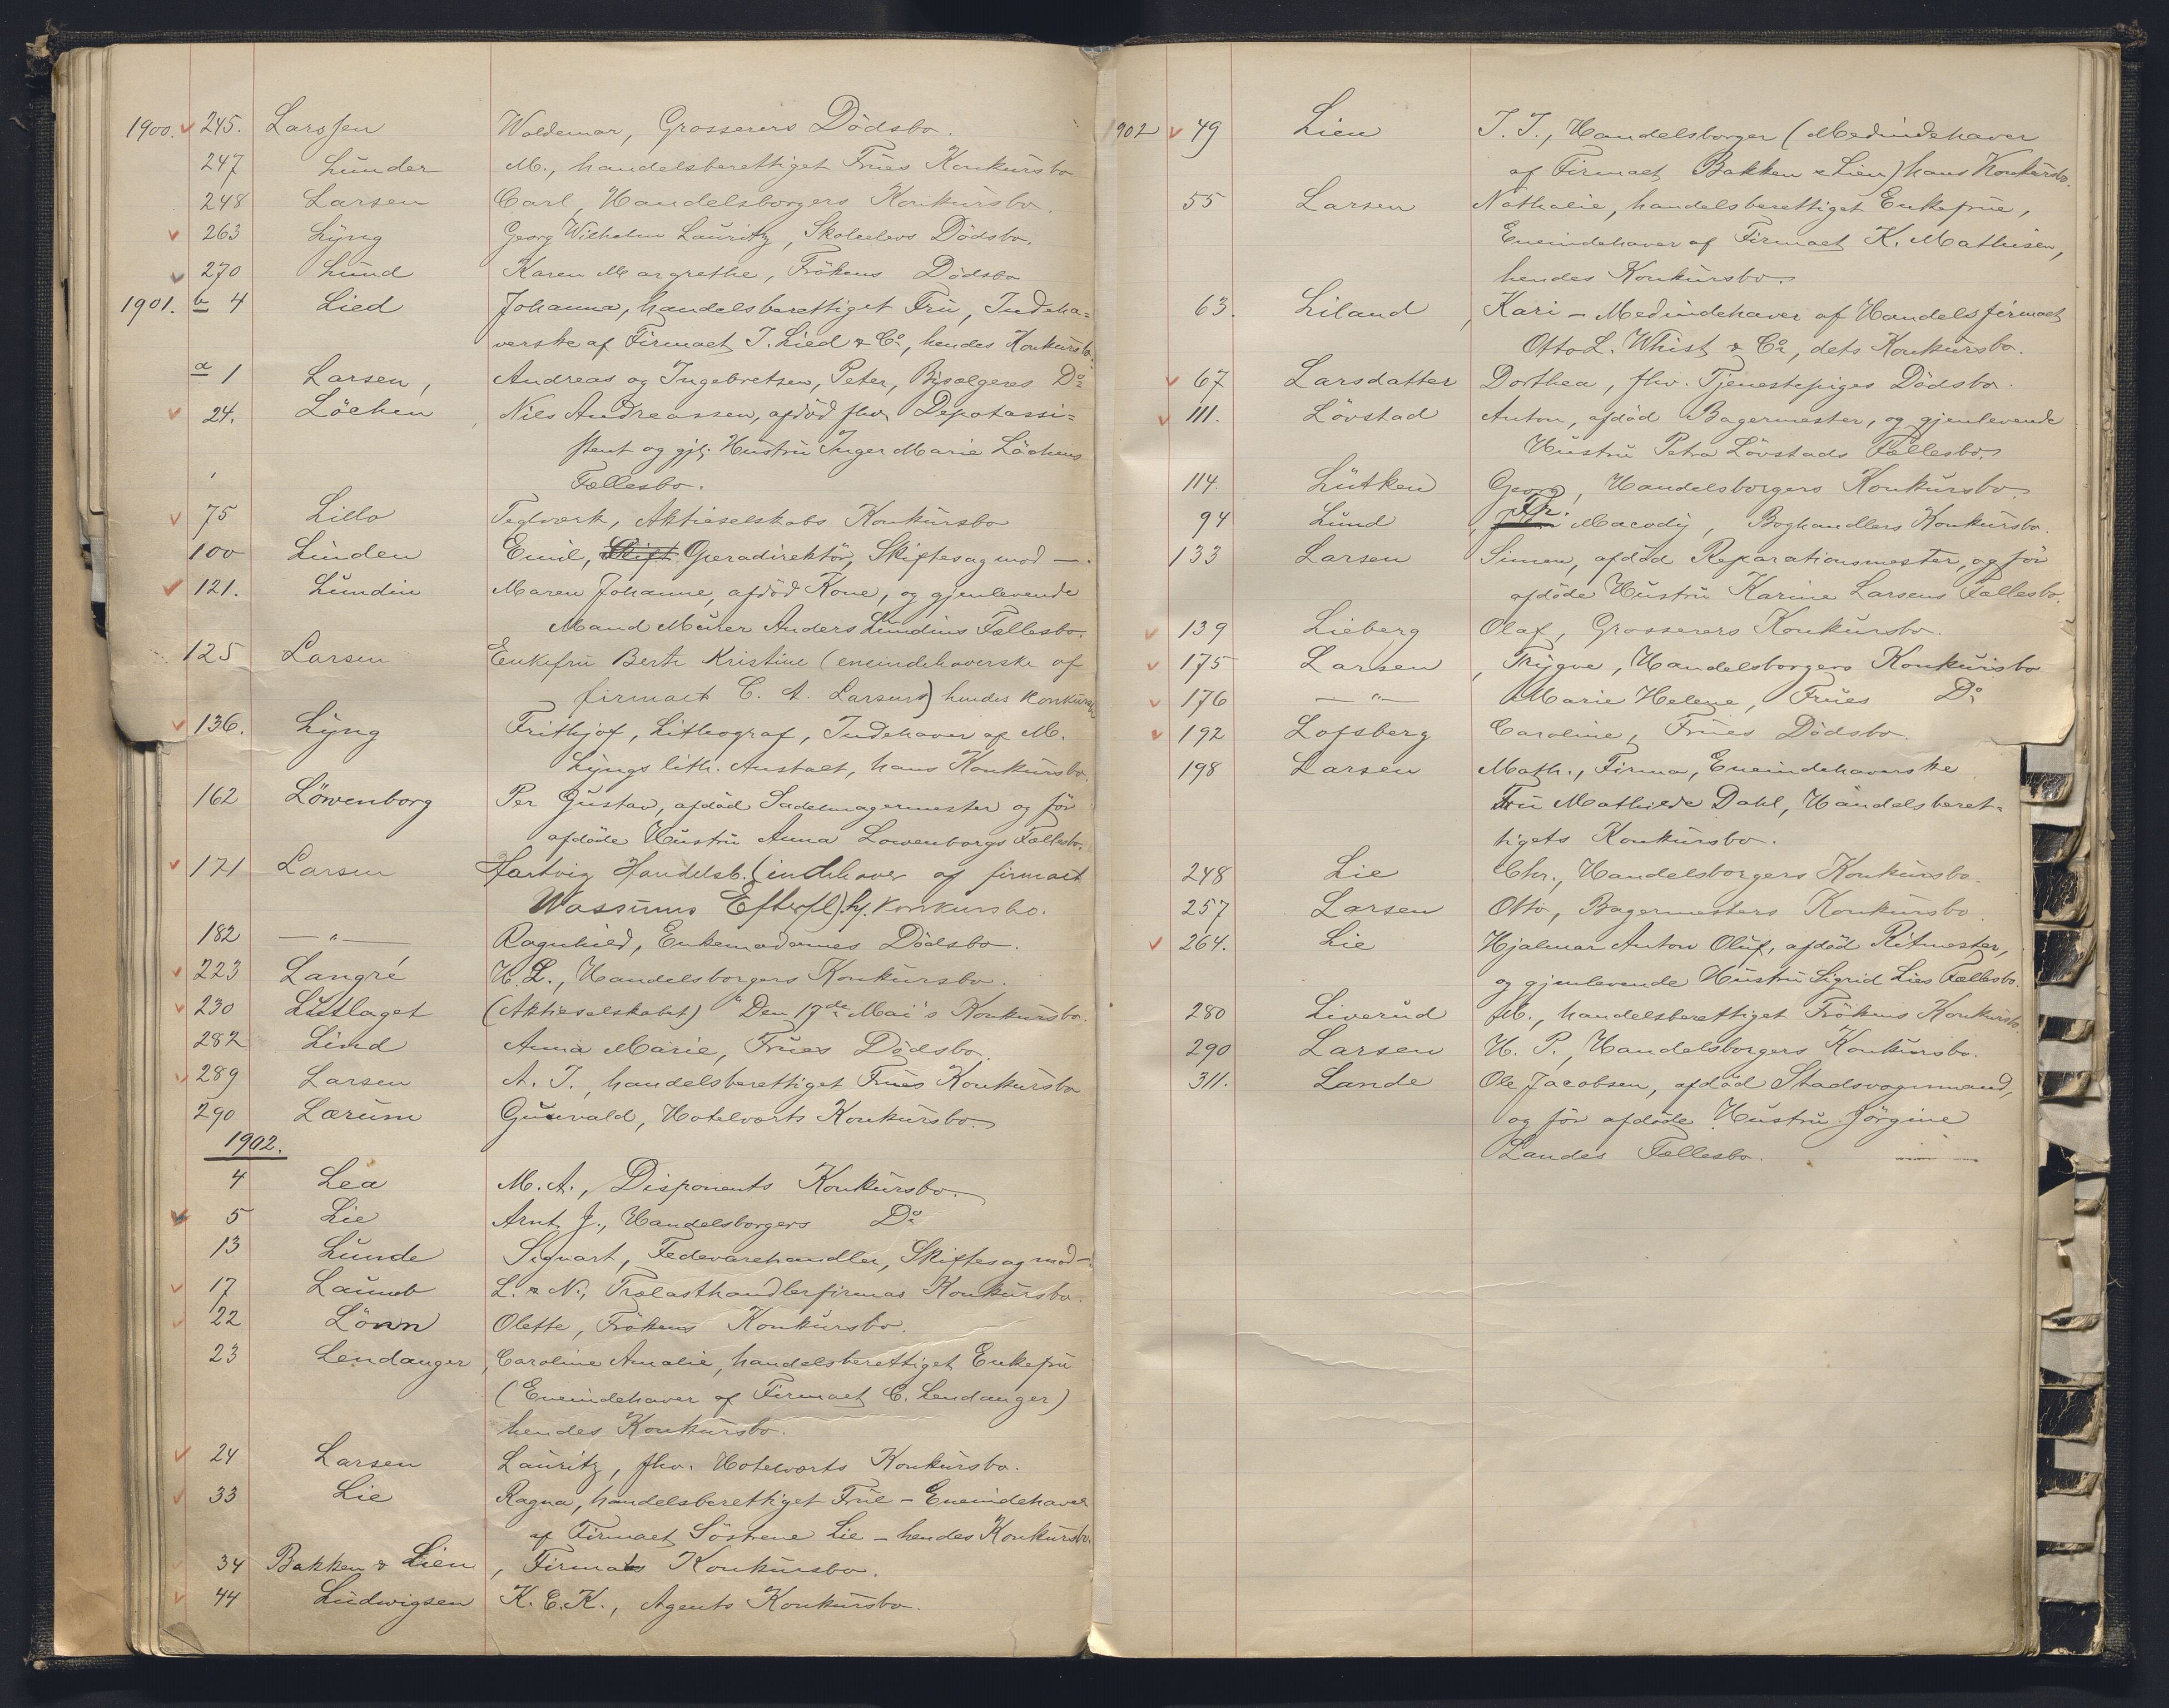 1900. 245. Larssen Waldemar, Grosserers Dödsbo.
247 Lunder M., handelsberettiget Frues Konkursbo
248 Larsen Carl, Handelsborgers Konkursbo.
263 Lyng Georg Wilhelm Lauritz, Skoleelevs Dödsbo.
270 Lund Karen Margrethe, Frökens Dödsbo
1901. b 4 Lied Johanna, handelsberettiget Fru, Indeha=
verske af Firmaet J. Lied & Co, hendes Konkursbo.
a 1 Larsen, Andreas og Ingebretsen, Peter, Do
24. Löchen Nils Andreassen, afdöd fhv. Depotassi=
stent og gjl. Hustru Inger Marie Löchens
Fællesbo.
75 Lillo Teglværk, Aktieselskabs Konkursbo
100 Linden Emil, Skift. Operadirektör, Skiftesag mod —.
121. Lundin Maren Johanne, afdöd Kone, og gjenlevende
Mand Murer Anders Lundins Fællesbo.
125 Larsen Enkefru Berte Kristine (eneindehaverske af
firmaet C. A. Larsens) hendes Konkursb
136. Lyng Frithjof, Lithograf, Indehaver af M.
Lyngs lith. Anstalt, hans Konkursbo.
162 Löwenborg Per Gustav, afdöd Sadelmagermester og för
afdöde Hustru Anna Lowenborgs Fællesbo.
171 Larsen Hartvig Handelsb. (indehaver af firmaet
Wassums Efterfl). hs. konkursbo.
182 — " — Ragnhild, Enkemadames Dödsbo.
223 Langré H. L., Handelsborgers Konkursbo.
230 Lutlaget (Aktieselskabet) "Den 17de Mai"s Konkursbo.
282 Lind Anna Marie, Frues Dödsbo.
289 Larsen A. J., handelsberettiget Frues Konkursbo
290 Lærum Gunvald, Hotelværts Konkursbo.
1902.
4 Lea M. A., Disponents Konkursbo.
5 Lie Arnt J., Handelsborgers Do
13 Lunde Siguart, Fedevarehandler, Skiftesag mod —.
17 Laumb L. & N., Trælasthandlerfirmas Konkursbo.
22 Lönn Olette, Frökens Konkursbo.
23 Lendanger, Caroline Amalie, handelsberettiget Enkefru
(Eneindehaver af Firmaet C. Lendanger)
hendes Konkursbo.
24 Larsen Lauritz, fhv. Hotelværts Konkursbo.
33 Lie Ragna, handelsberettiget Frue – Eneindehaver
af Firmaet Söstrene Lie – hendes Konkursbo.
34 Bakken & Lien, Firmats Konkursbo.
44 Ludwigsen K. E. K., Agents Konkursbo.
1902 49 Lien J. J., Handelsborger (Medindehaver
af Firmaet Bakken & Lien) hans Konkursbo.
55 Larsen Nathalie, handelsberettiget Enkefrue,
Eneindehaver af Firmaet K. Mathisen,
hendes Konkursbo.
63. Liland, Kari – Medindehaver af Handelsfirmaet
Otto L. Whist & Co, dets Konkursbo.
67 Larsdatter Dorthea, fhv. Tjenestepiges Dödsbo.
111. Lövstad Anton, afdöd Bagermester, og gjenlevende
Hustru Petra Lövstads Fællesbo.
114. Lütken Georg, Handelsborgers Konkursbo.
94 Lund, Fr. Macody, Boghandlers Konkursbo.
133 Larsen Simen, afdöd Reparationsmester, og för
afdöde Hustru Karine Larsens Fællesbo.
139 Lieberg Olaf, Grosserers Konkursbo.
175 Larsen, Trygve, Handelsborgers Konkursbo
176 — " — Marie Helene, Frues Do
192 Lofsberg Caroline, Frues Dödsbo.
198 Larsen Math., Firma, Eneindehaverske
Fru Mathilde Dahl, Handelsberet=
tigets Konkursbo.
248 Lie Chr., Handelsborgers Konkursbo.
257 Larsen Otto, Bagermesters Konkursbo.
264. Lie Hjalmar Anton Oluf, afdöd Ritmester,
og gjenlevende Hustru Sigrid Lies Fællesbo.
280 Liverud M., handelsberettiget Frökens Konkursbo.
290 Larsen H. P., Handelsborgers Konkursbo.
311. Lande Ole Jacobsen, afdöd Stadsvognmand,
og för afdöde Hustru Jörgine
Landes Fællesbo.